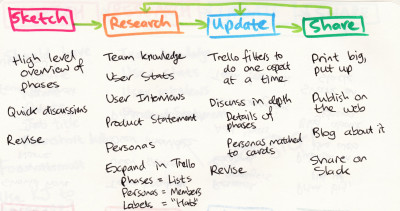 Sketch
Research
Update
Share
High level
overview of
phases
Quick discussions
Revise
Team knowledge
User Stats
User Interviews
Product Statement
Personas
Expand in Trello
Phases = Lists
Personas = Members
Labels = "Hats"
Trello filters to
do one aspect
at a time
Discuss in depth
Details of
phases
Personas matched
to cards
Revise
Print big,
put up
Publish on
the web
Blog about it
Share on
Slack